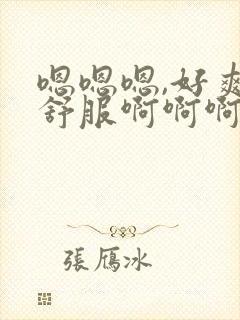 嗯嗯嗯,好爽
舒服啊啊啊
張鴈冰